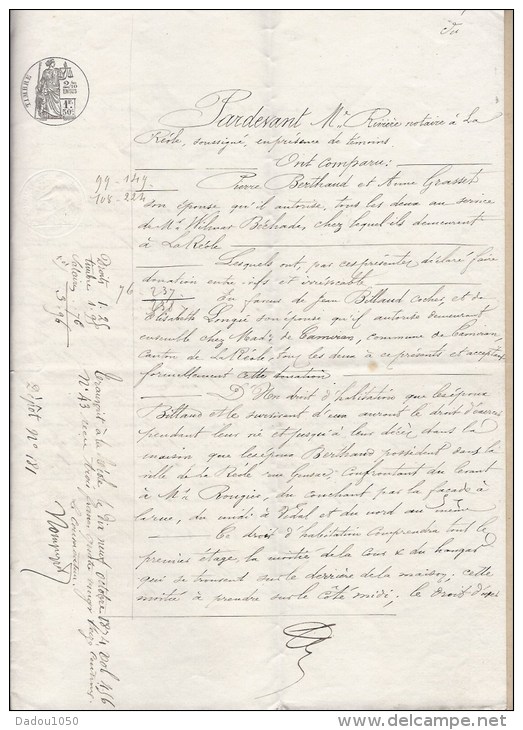 TIMBRE
2 50 
1 F. 50 C.
Pardevant Me Rivière notaire à La
Réole, soussigné, en présence de témoins.
Ont comparu:
99 - 149.
108 - 224
Pierre Berthaud et Anne Grasset
son épouse qu'il autorise, tous les deux au service
de Mr Wilmer Béchade, chez lequel ils demeurent
à La Réole
Lesquels ont, par ces présentes déclaré faire
donation entre vifs et irrévocable
76
237
En faveur de Jean Billaud cocher, et de
Elisabeth son épouse qu'il autorise demeurant
ensemble chez Made de Camiran, commune de Camiran
Canton de La Réole, tous les deux à ce présents et acceptant
formellement cette donation
D'Un droit d'habitation que les époux
Billaud et le survivant d'eux auront le droit d'exercer
pendant leur vie et jusqu'à leur décès dans la
maison que les époux Berthaud possèdent dans la
ville de la Réole rue, confrontant du levant
à Mr Rougier, du couchant par la façade à
la rue, du midi à Vidal et du nord au même
Ce droit d'habitation comprendra tout le
premier étage, la moitié de la cour & du hangar
qui se trouvent sur le derrière de la maison; cette
moitié à prendre sur le côté midi; le droit d'user
Droits 1.25
timbre 1.95
Salaire 76
3.96
Transcrit à la Réole le dix neuf octobre 1874, vol 456
No 43
Le Conservateur
2 dépôt No 181
Dadou1050